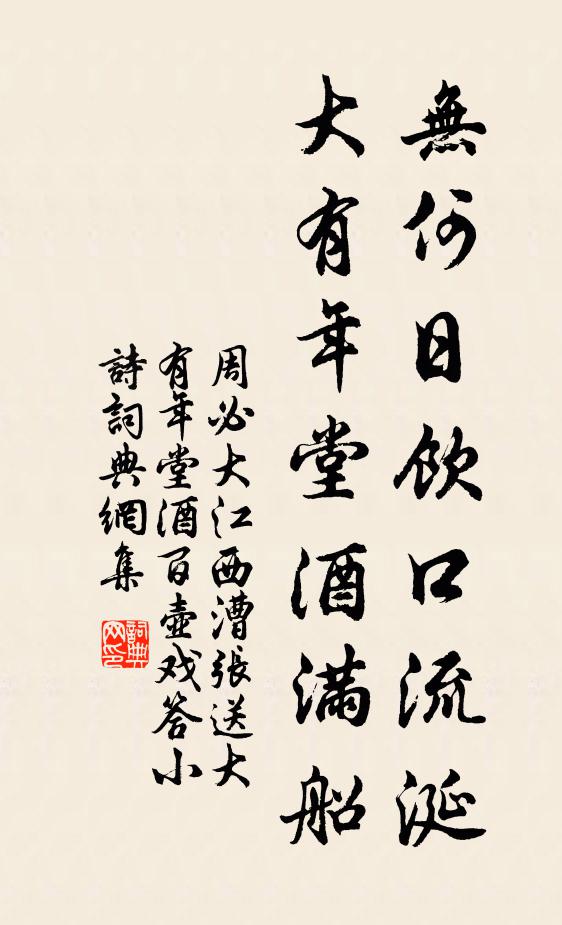 無何日飲口流涎
大有年堂酒満船
周必大江西漕張送大
有年堂酒百壷戏答小
詩詞典網集
詞典
网印